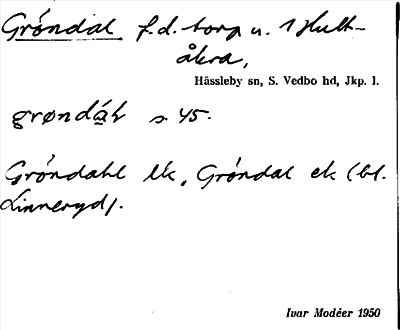 Gröndal f.d. torp u. 1 Hult-
åkra,
Hässleby sn, S. Vedbo hd, Jkp. l.
grøndáɫ s. 45.
Gröndahl lk, Gröndal ek (bl.
Linneryd).
Ivar Modéer 1950